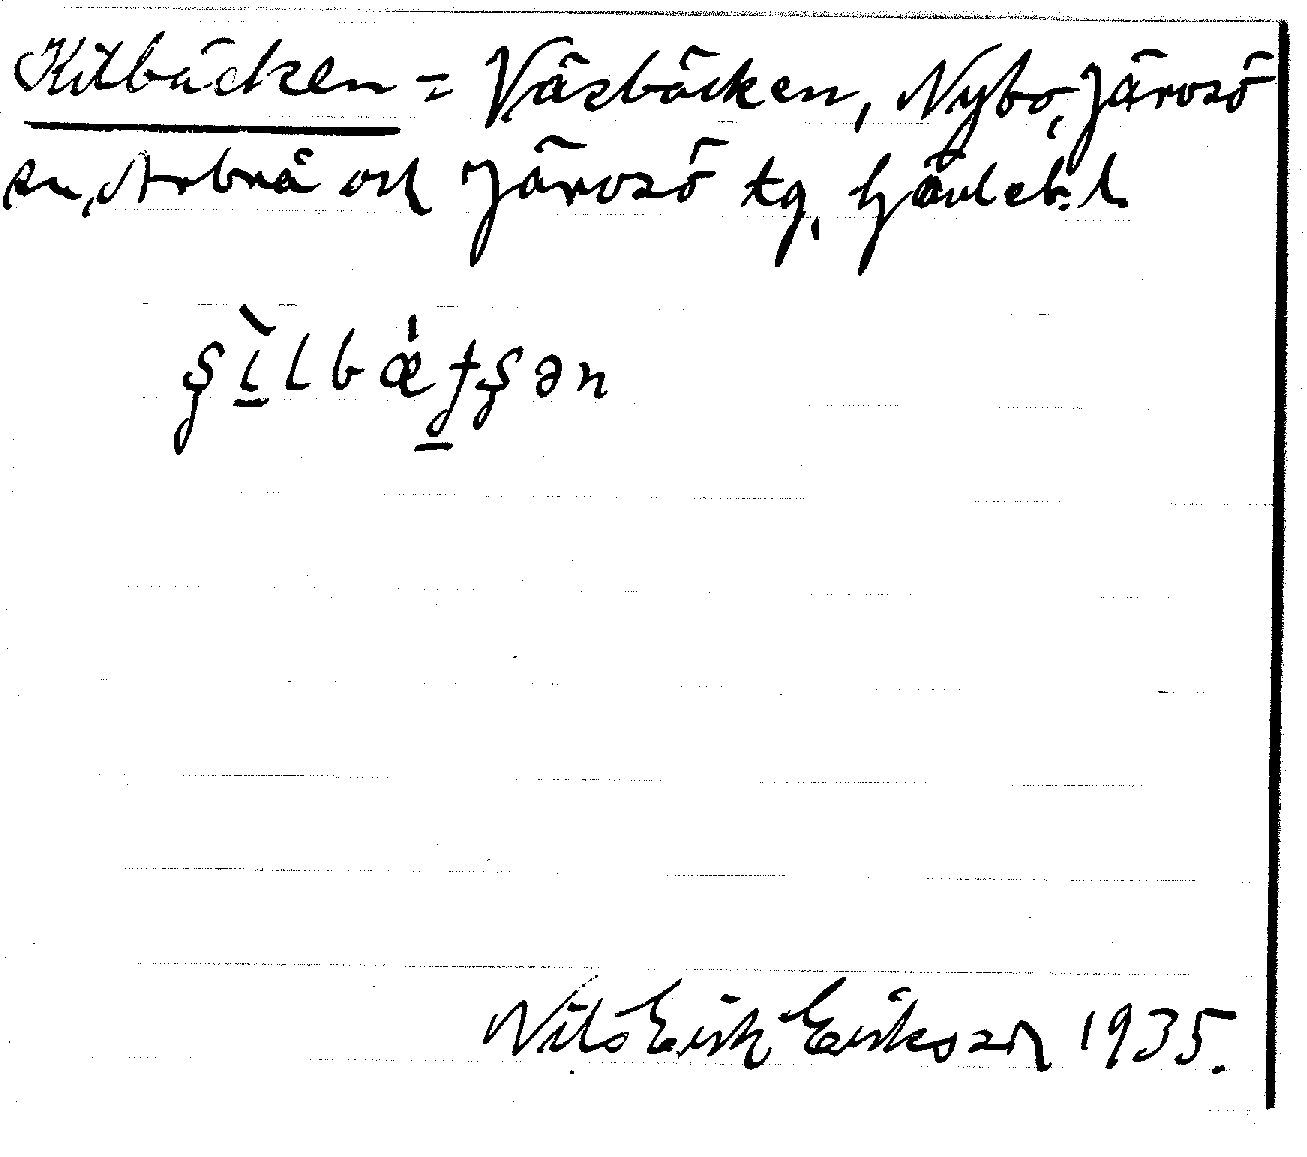 Kilbäcken = Väsbäcken, Nybo, Järvsö
sn, Arbrå och Järvsö tg, Gävleb. l.
ʂìlbæ̍tʂən
Nils Erik Eriksson 1935.